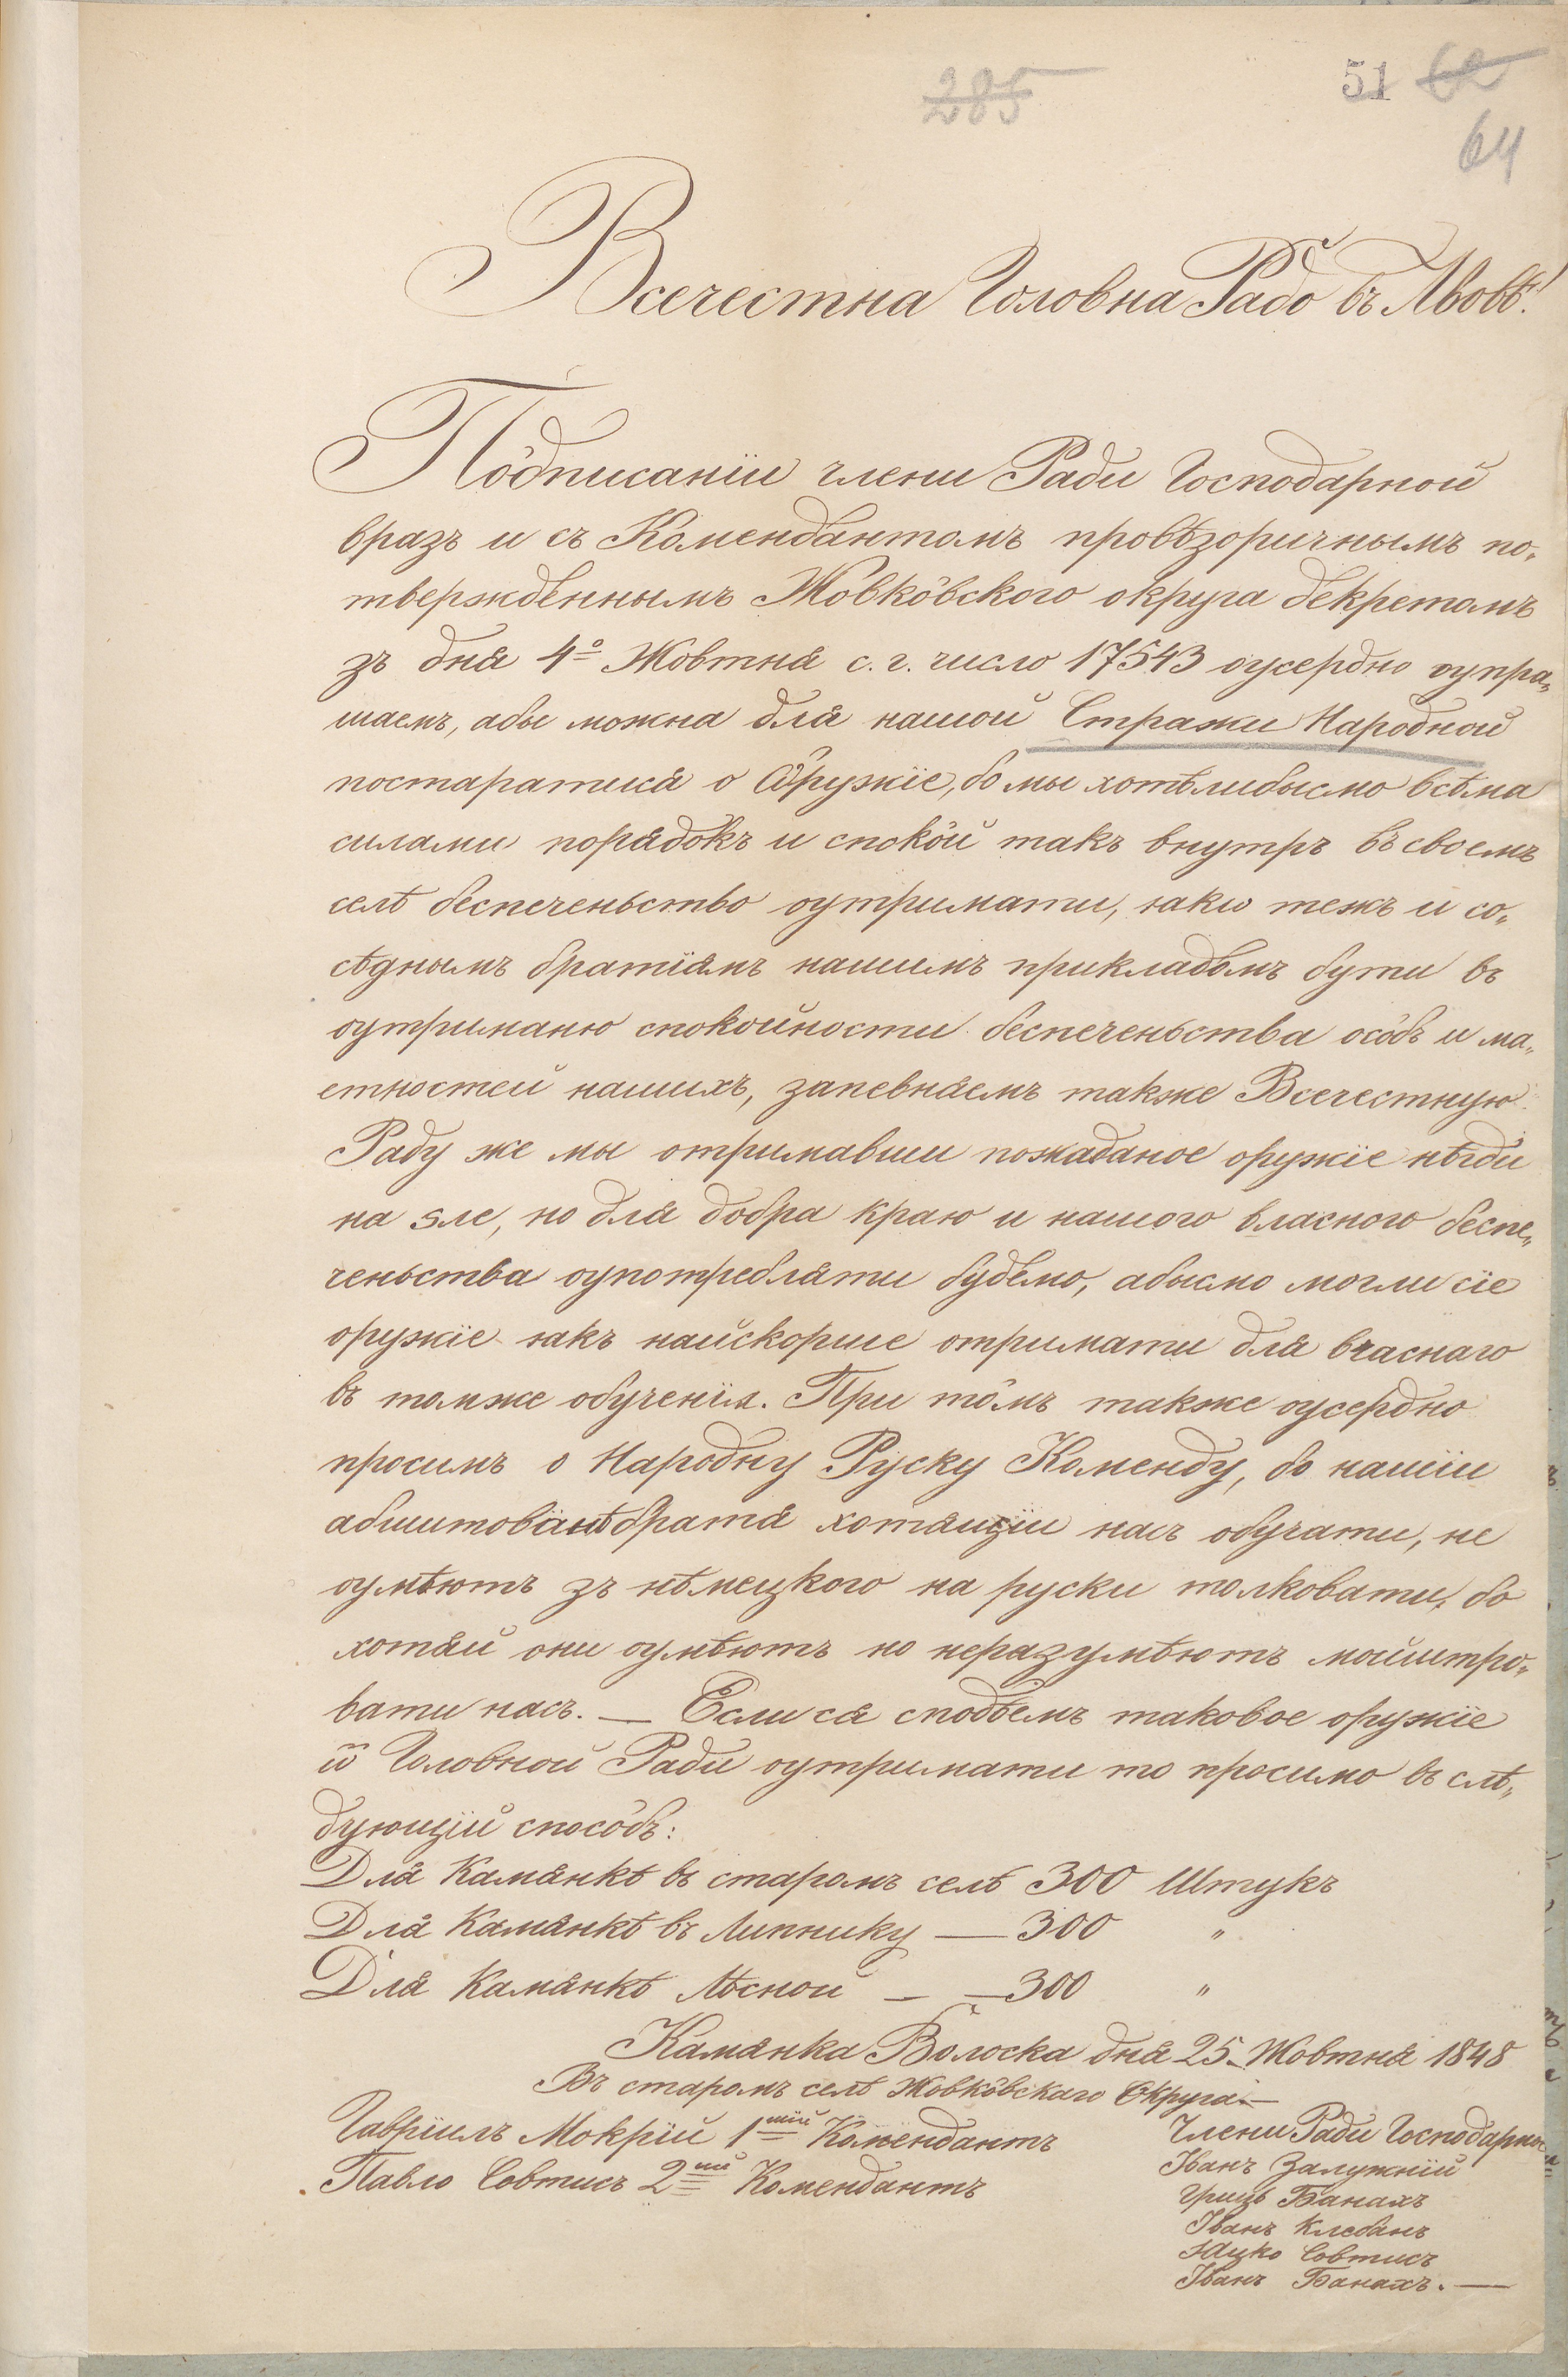 285
51 62
64
Всечестна Головна Радо въ Львовѣ!
Пôдписаніи члени Ради Господарной
вразъ и съ Комендантомъ провѣзоричнымъ по„
твержденнымъ Жôвкôвского округа декретомъ
зъ дня 4º Жовтня с. г. число 17543 оусердно оупра„
шаемъ, абы можна для нашой Стражи Народной
постаратися о Ѻружіе, бо мы хотѣлибысмо всѣма
силами порядокъ и спокôй такъ внутръ въ своемъ
селѣ беспеченьство оутримати, якѡ тежъ и со„
сѣднымъ братіямъ нашимъ прикладомъ бути въ
оутриманю спокойности беспеченьства осôбъ и ма„
етностей нашихъ, запевняемъ также Всечестную
Раду же мы отримавши пожаданое оружіе нѣгди
на ѕле, но для добра краю и нашого власного беспе„
ченьства оупотребляти будемо, абысмо могли сіе
оружіе якъ найскорше отримати для вчаснаго
въ томже обученія. При тôмъ также оусердно
просимъ о Народну Руску Коменду, бо нашіи
абшитованѣ братя хотящіи насъ обучати, не
оумѣютъ зъ нѣмецкого на руски толковати, бо
хотяй они оумѣютъ но неразумѣютъ майштро„
вати насъ. — Если ся сподѣемъ таковое оружіе
ѿ Головной Ради оутримати то просимо въ слѣ„
дующій способъ:
Для Камянкѣ въ старомъ селѣ 300 Штукъ
Для Камянкѣ въ Липнику — 300 "
Для Камянкѣ Лѣсной — — 300 "
Камянка Волоска дня 25. Жовтня 1848
Въ старомъ селѣ Жовкôвскаго Округа —
Гавріилъ Мокрій 1шій Комендантъ
Павло Совтисъ 2ий Комендантъ
Члени Ради Господарной
Іванъ Залужній
Гриць Банахъ
Іванъ Клебанъ
Яцко Совтисъ
Іванъ Банахъ. —